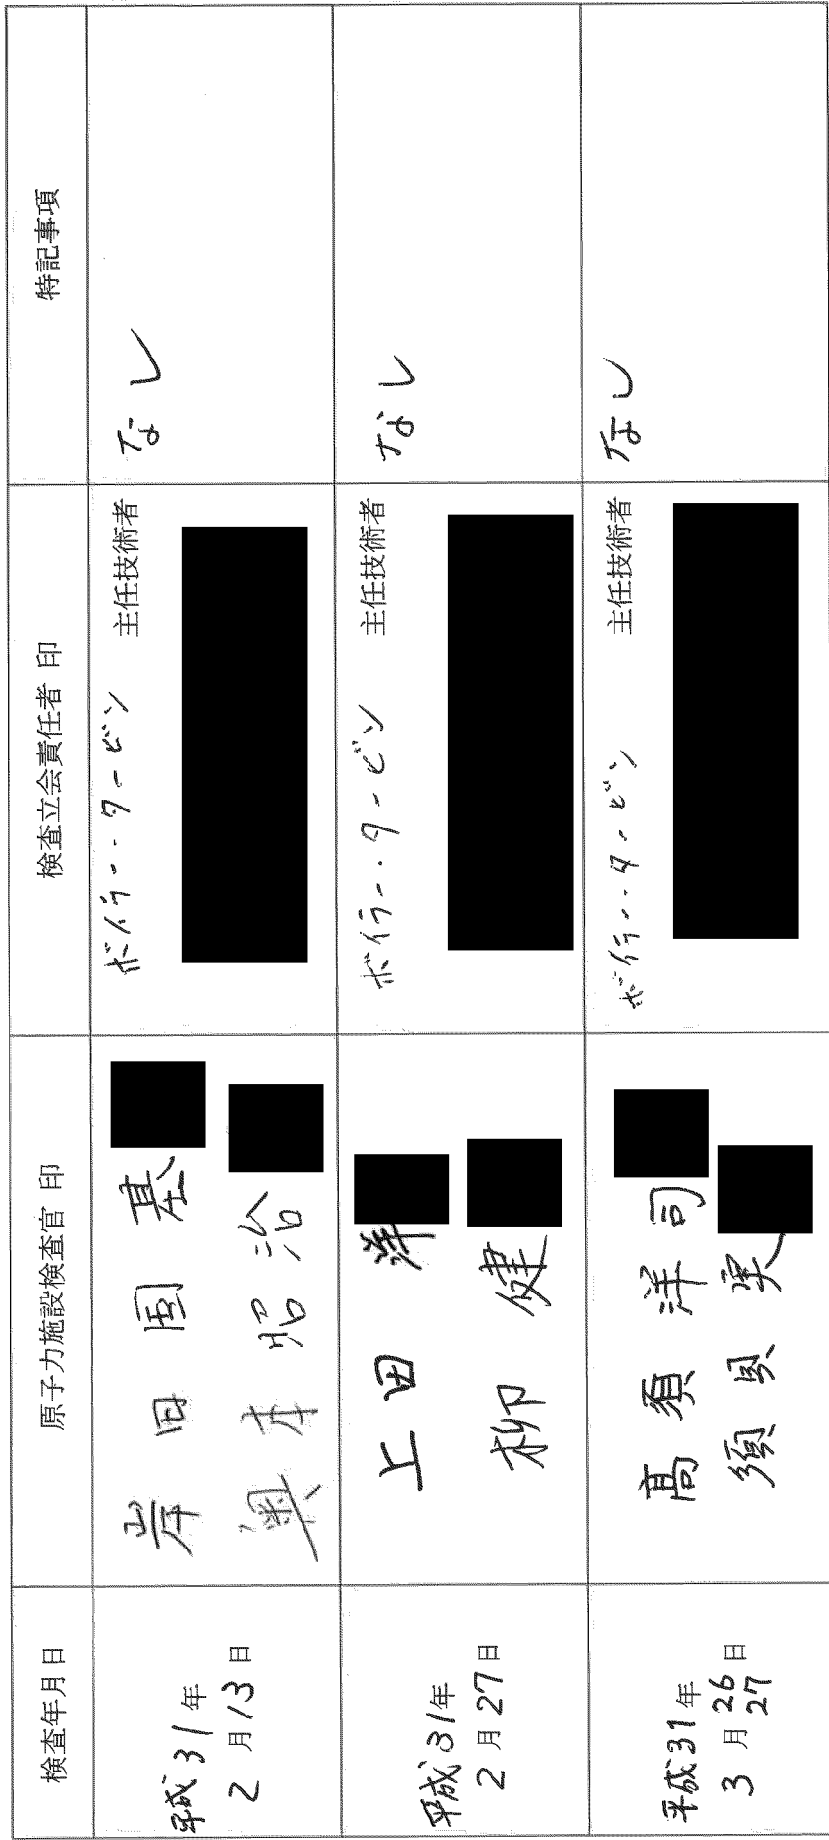 検査年月日
原子力施設検査官 印
検査立会責任者 印
特記事項
平成31年
2月13日
岸田圀基
奥本昭治
ボイラー・タービン 主任技術者
なし
平成31年
2月27日
上田洋
柳健
ボイラー・タービン 主任技術者
なし
平成31年
3月26日
27
高須洋司
須貝
ボイラー・タービン 主任技術者
なし